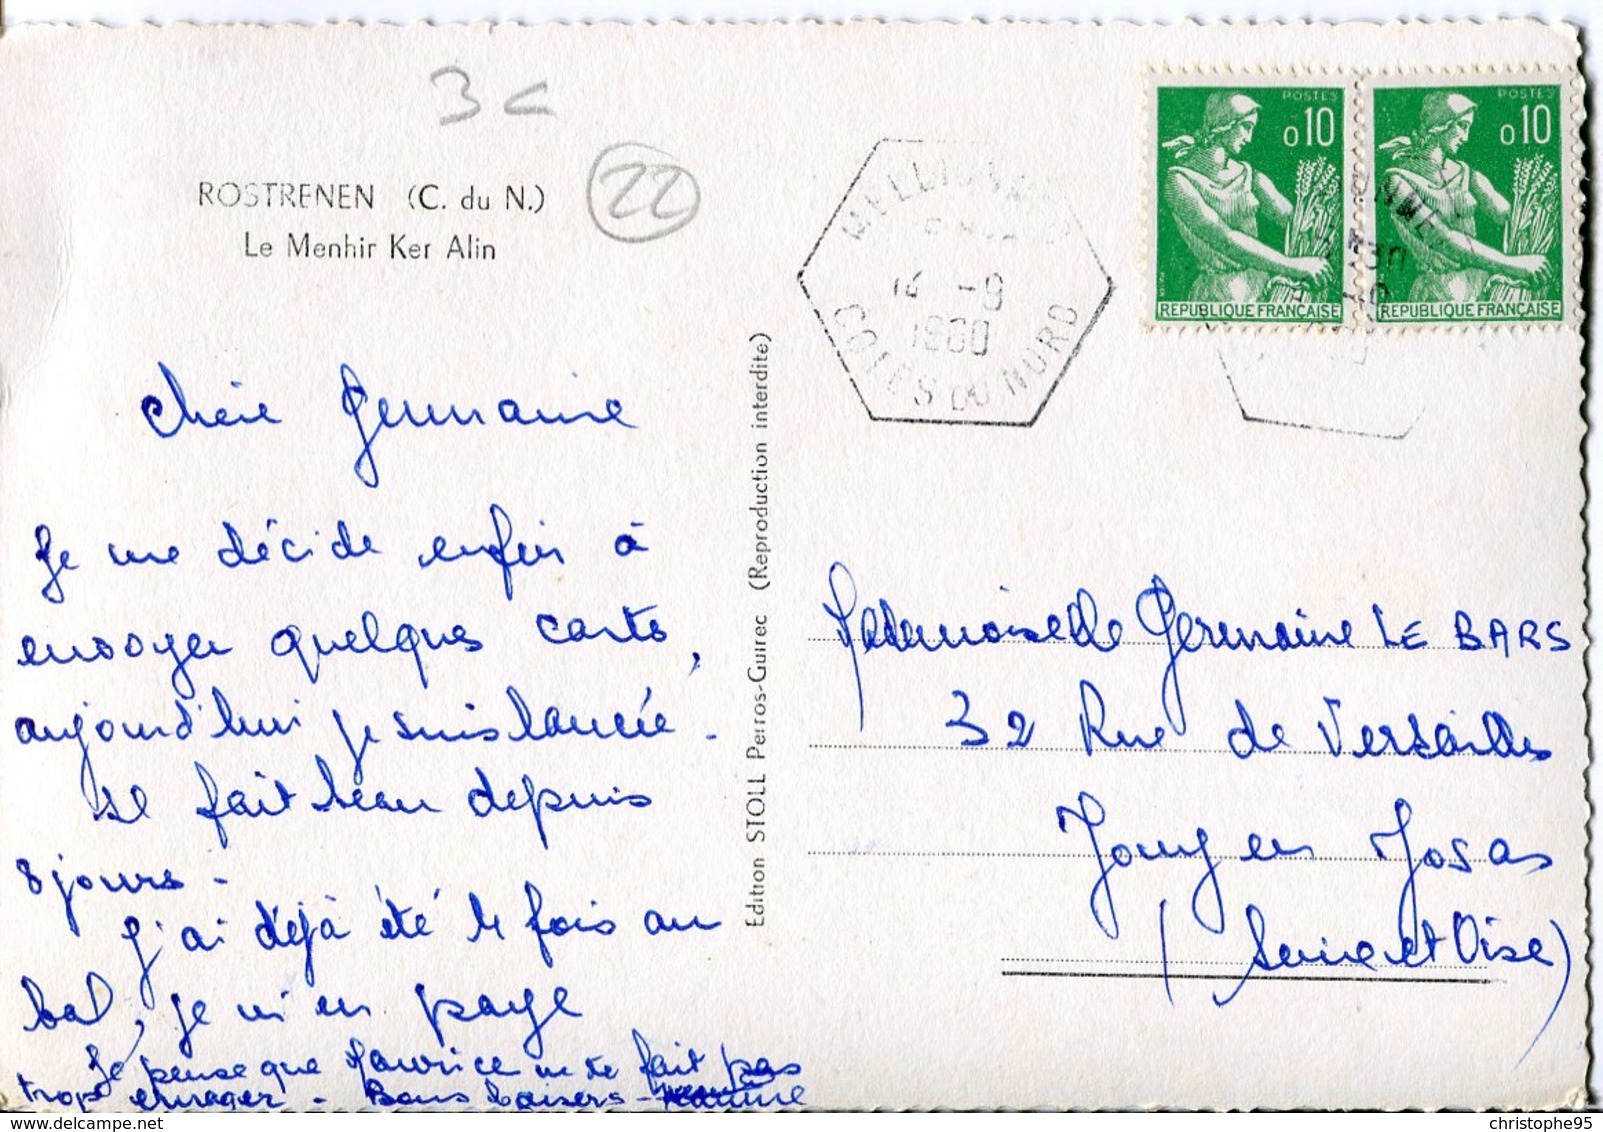 3 c
22
ROSTRENEN (C. du N.)
Le Menhir Ker Alin
Chère Germaine
Je me décide enfin à
envoyer quelques cartes,
aujourd'hui je suis lancée.
Il fait beau depuis
8 jours.
J'ai déjà été 4 fois au
bal, je m'en paye
Je pense que Maurice ne te fait pas
trop enrager. Bons baisers.
Edition STOLL Perros-Guirec (Reproduction interdite)
14 -9
1960
COTES DU NORD
POSTES
0,10
REPUBLIQUE FRANÇAISE
POSTES
0,10
REPUBLIQUE FRANÇAISE
Mademoiselle Germaine LE BARS
32 Rue de Versailles
Jouy en Josas
(Seine et Oise)
www.delcampe.net
christophe95